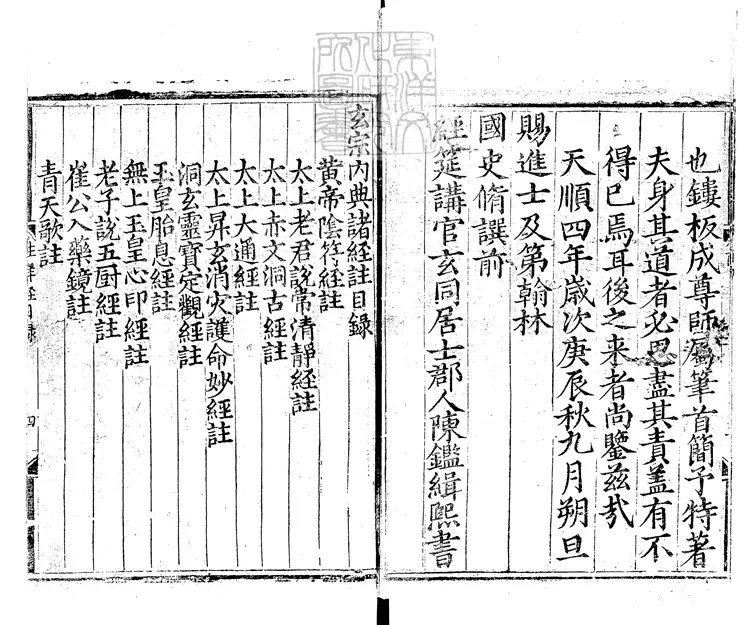 也鏤板成尊師屬筆首簡予特著
夫身其道者必思盡其責盖有不
得已焉耳後之来者尚鑒兹㢤
天順四年歲次庚辰秋九月朔旦
賜進士及第翰林
國史脩譔前
經筵講官玄同居士郡人陳鑑緝熙書
玄宗内典諸經註目錄
黄帝陰符經註
太上老君說常清靜經註
太上赤文洞古經註
太上大通經註
太上昇玄消灾護命妙經註
洞玄靈寶定觀經註
玉皇胎息經註
無上玉皇心印經註
老子說五厨經註
崔公入藥鏡註
青天歌註
四